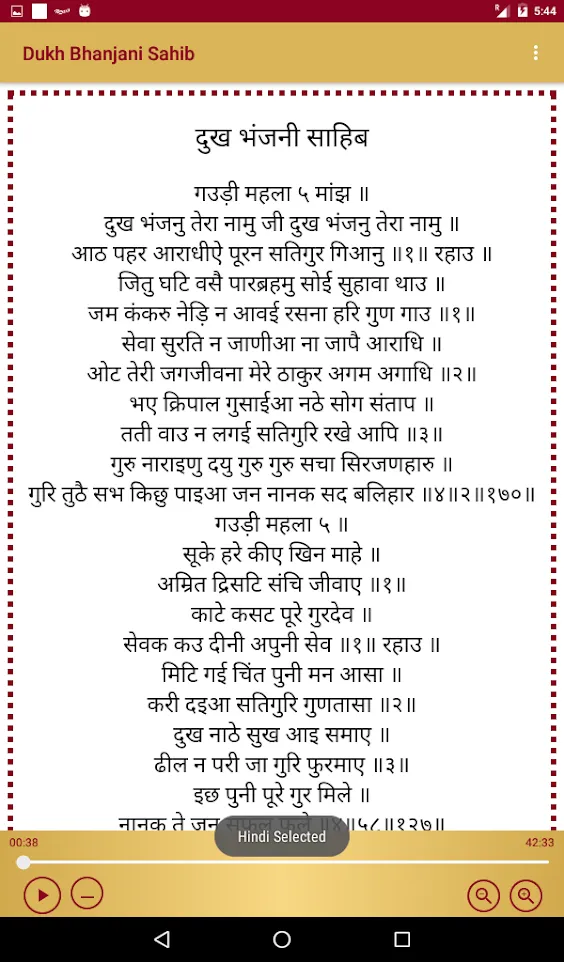 5:44
Dukh Bhanjani Sahib
दुख भंजनी साहिब
गउड़ी महला ५ मांझ ॥
दुख भंजनु तेरा नामु जी दुख भंजनु तेरा नामु ॥
आठ पहर आराधीऐ पूरन सतिगुर गिआनु ॥१॥ रहाउ ॥
जितु घटि वसै पारब्रहमु सोई सुहावा थाउ ॥
जम कंकरु नेड़ि न आवई रसना हरि गुण गाउ ॥१॥
सेवा सुरति न जाणीआ ना जापै आराधि ॥
ओट तेरी जगजीवना मेरे ठाकुर अगम अगाधि ॥२॥
भए क्रिपाल गुसाईआ नठे सोग संताप ॥
तती वाउ न लगई सतिगुरि रखे आपि ॥३॥
गुरु नाराइणु दयु गुरु गुरु सचा सिरजणहारु ॥
गुरि तुठै सभ किछु पाइआ जन नानक सद बलिहार ॥४॥२॥१७०॥
गउड़ी महला ५ ॥
सूके हरे कीए खिन माहे ॥
अम्रित द्रिसटि संचि जीवाए ॥१॥
काटे कसट पूरे गुरदेव ॥
सेवक कउ दीनी अपुनी सेव ॥१॥ रहाउ ॥
मिटि गई चिंत पुनी मन आसा ॥
करी दइआ सतिगुरि गुणतासा ॥२॥
दुख नाठे सुख आइ समाए ॥
ढील न परी जा गुरि फुरमाए ॥३॥
इछ पुनी पूरे गुर मिले ॥
नानक ते जन सफल फले ॥४॥५८॥१२७॥
Hindi Selected
00:38
42:33